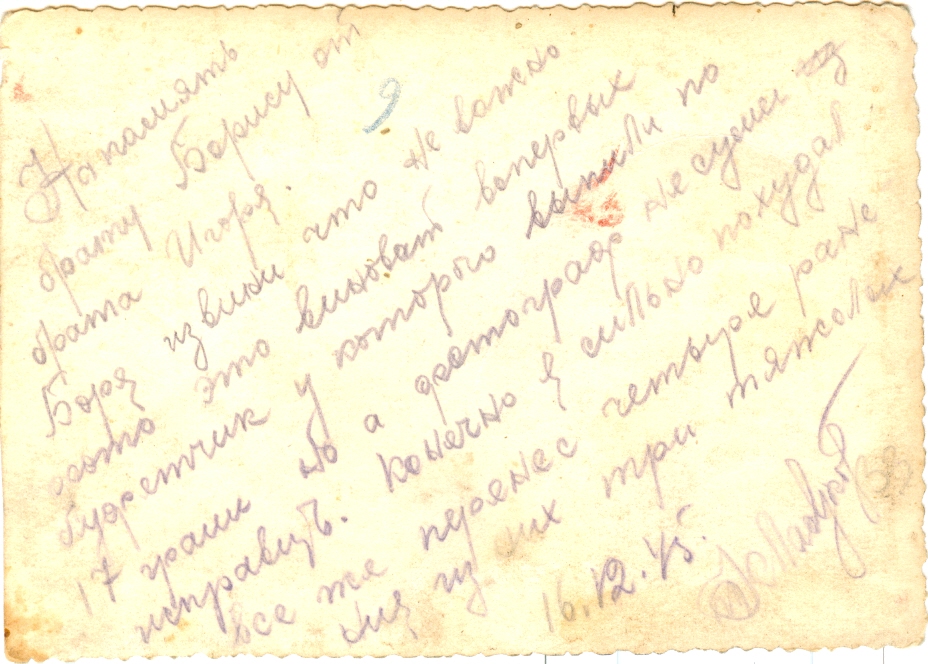 На память
брату Борису от
брата Игоря.
Боря извини что не важно
фото это виноват вопервых
буфетчик у которого выпили по
17 грам но а фотограф не сумел
исправить. Конечно я сильно похудал
все же перенес четыре ране
ния из них три тяжолых
16.12.45.
9